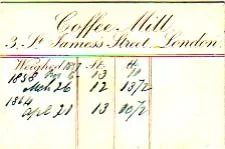 Coffee Mill
3, St. James's Street. London.
Weighed St. lb.
1858 6 13
Mch 26 12 13 1/2
1864
Apl 21 13 10 1/2